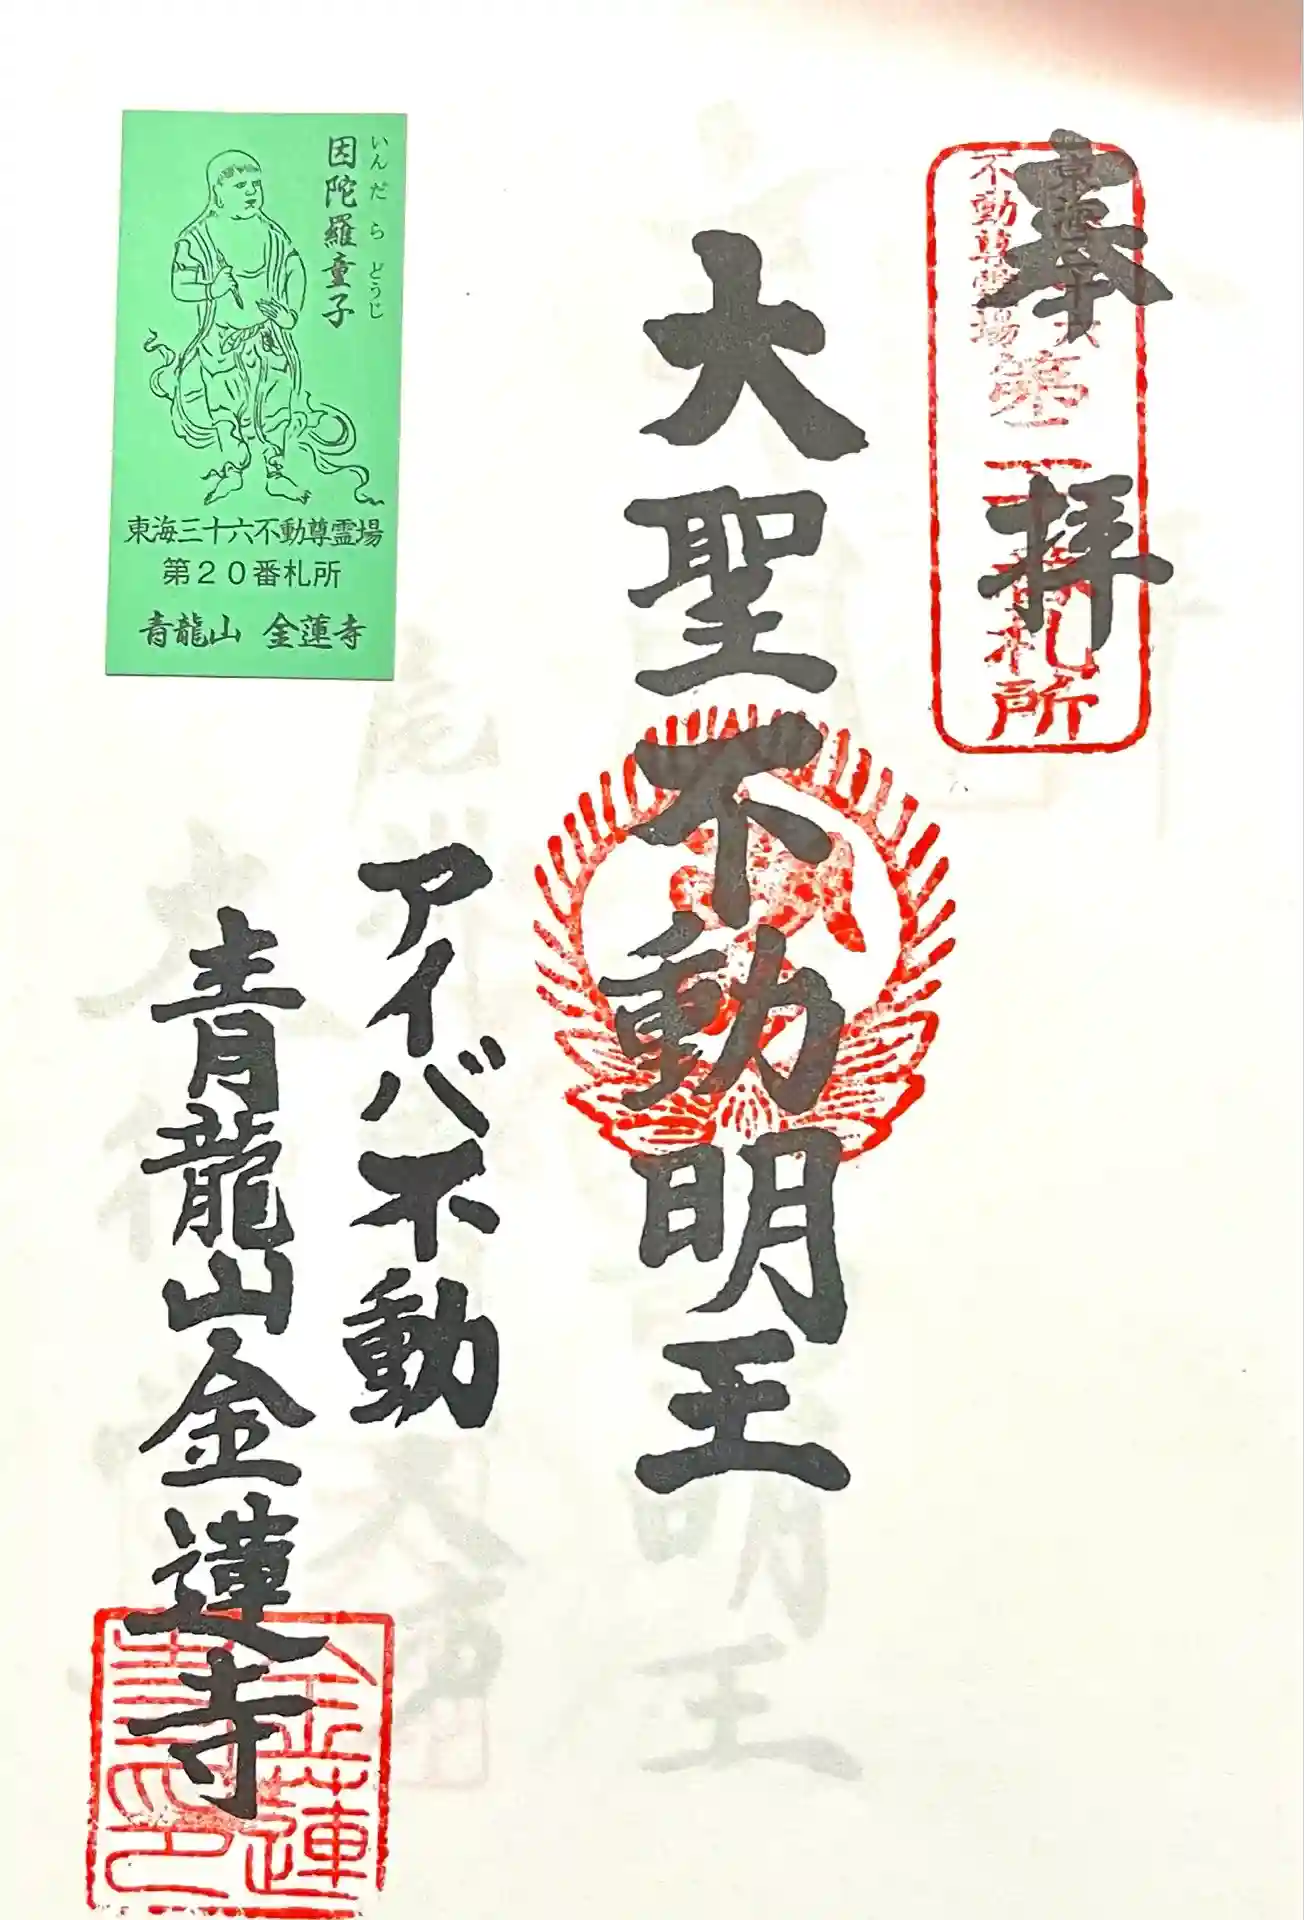 奉拝
東海三十六
不動尊霊場
第二十番札所
大聖不動明王
アイバ不動
青龍山金蓮寺
金蓮
寺印
いんだらどうじ
因陀羅童子
東海三十六不動尊霊場
第20番札所
青龍山 金蓮寺